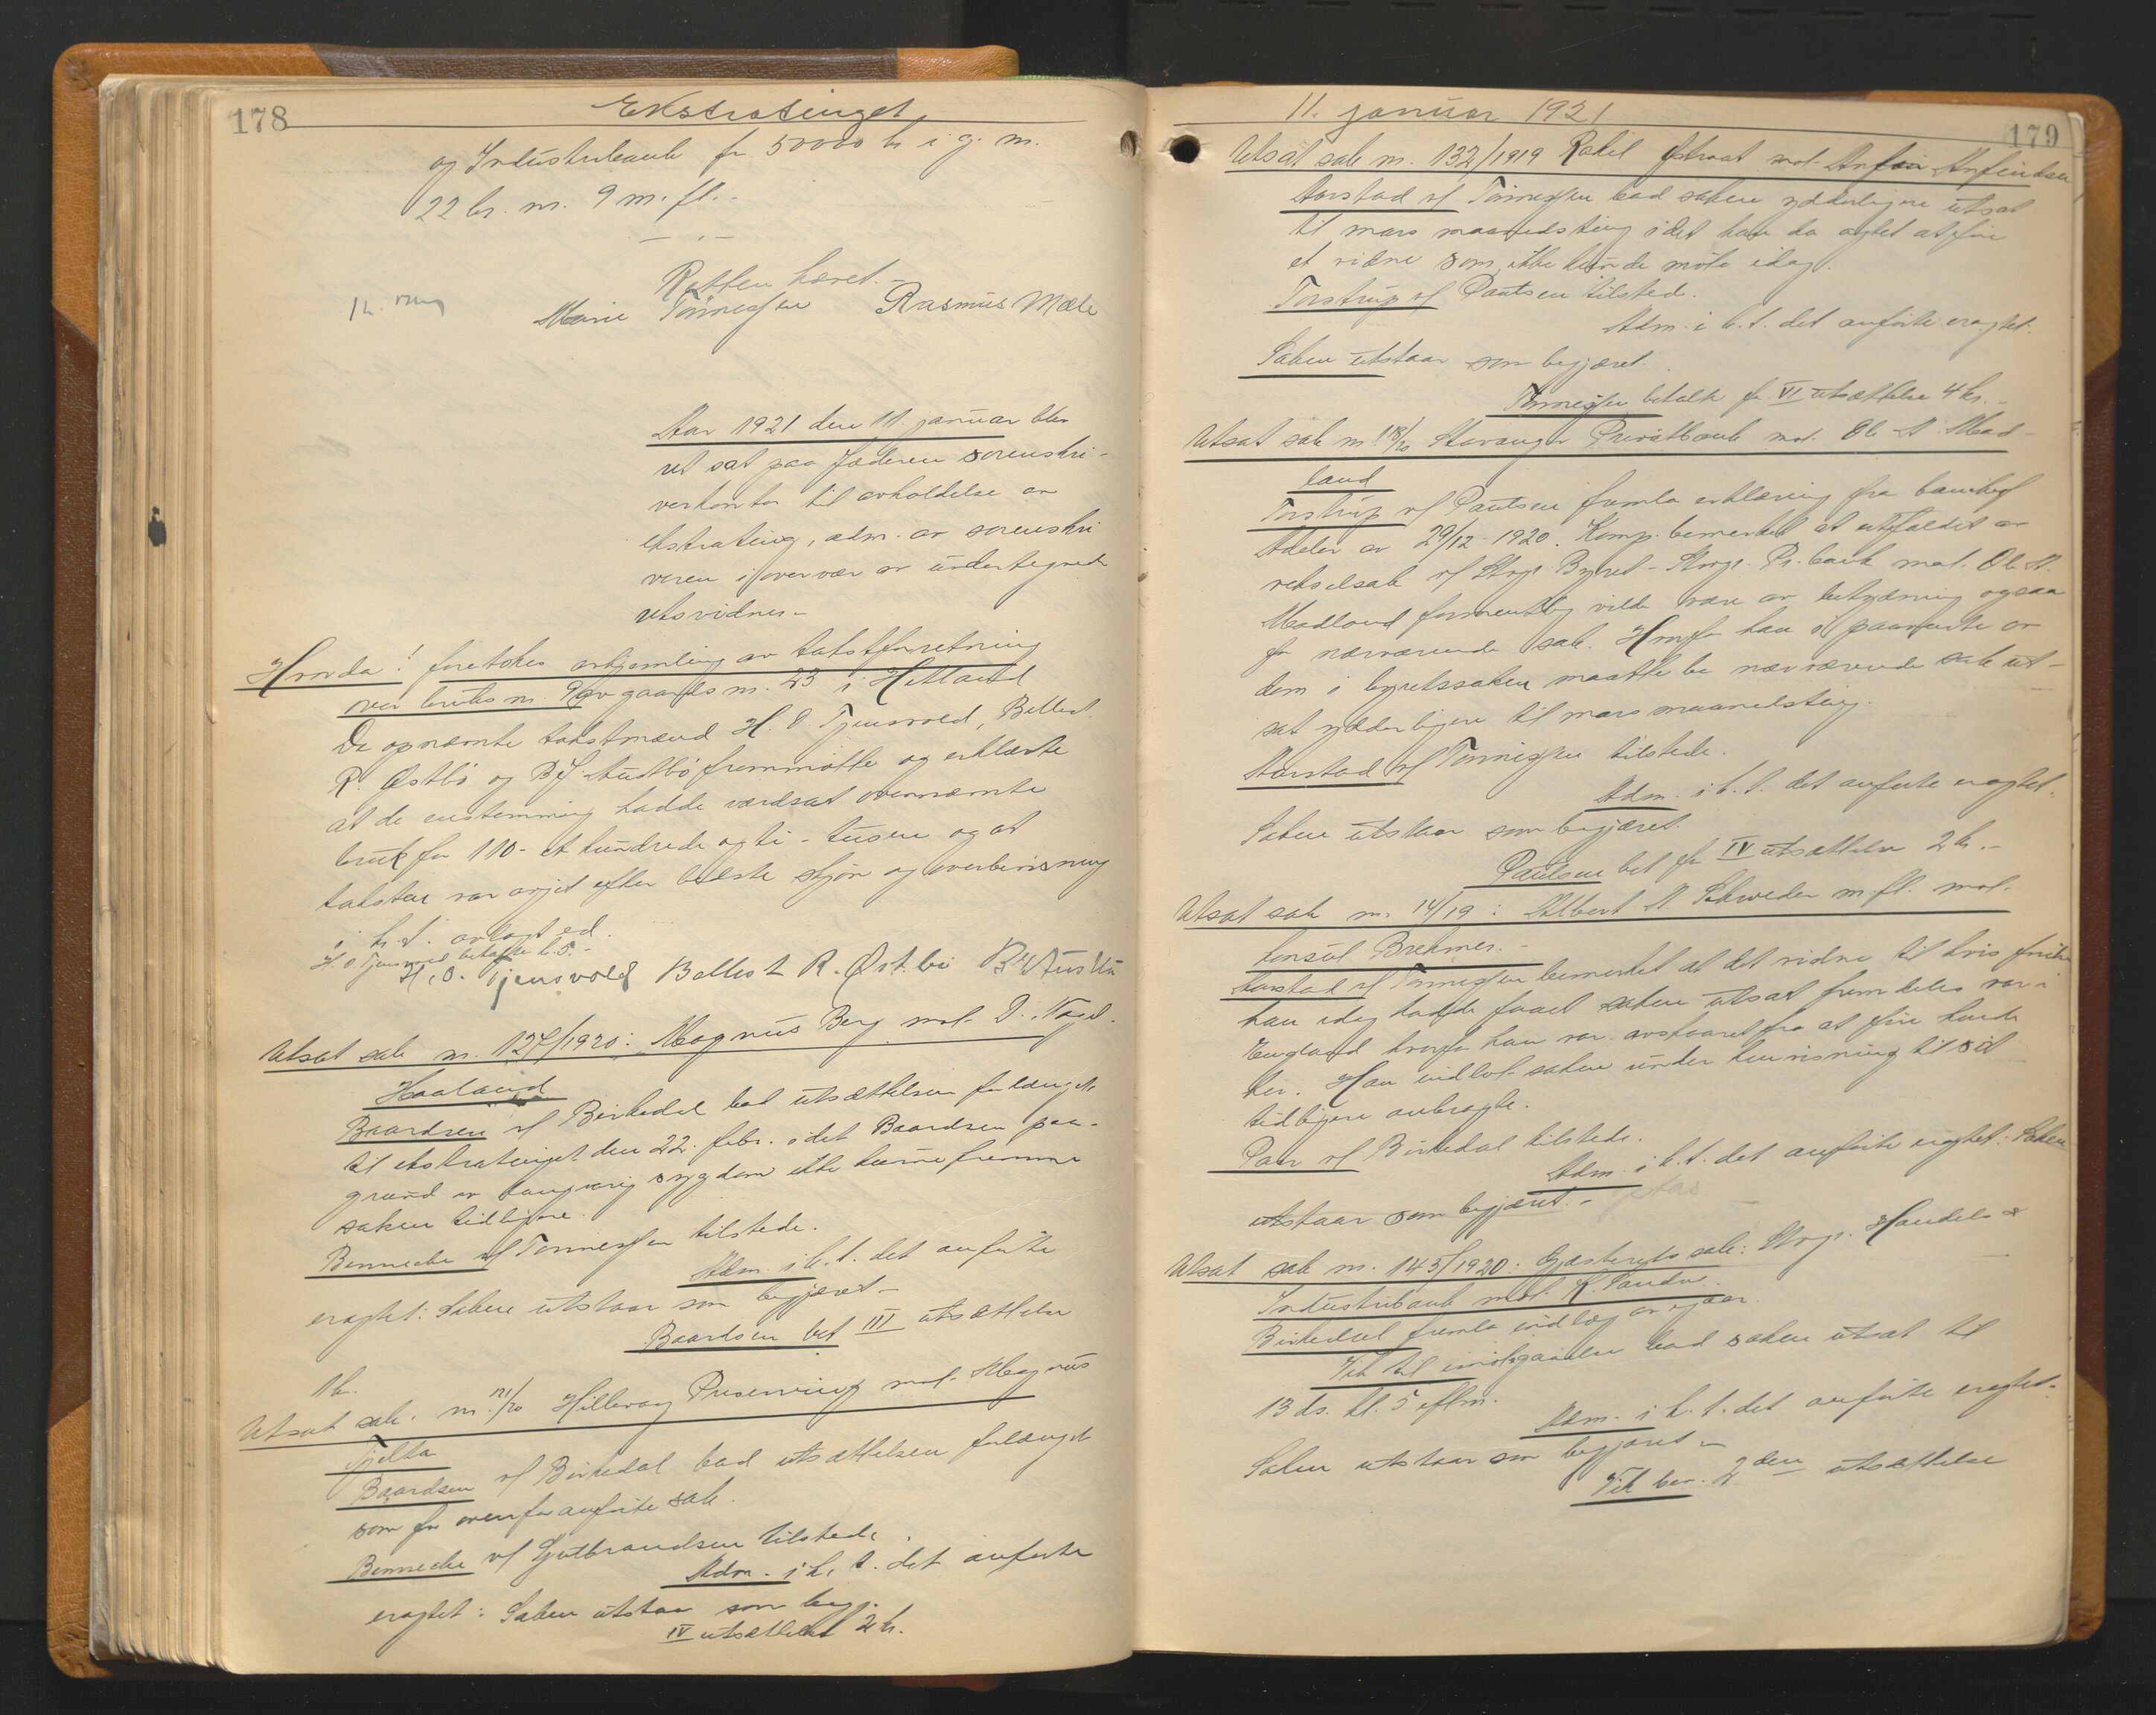 178
Ekstratinget
og Industribank for 50000 kr i g. nr.
22 br. nr. 9 m. fl. -
Retten hævet. -
Marie Tönnessen Rasmus Mæle
Aar 1921 den 11. januar blev
ret sat paa Jæderen sorenskri-
verkontor til avholdelse av
ekstrating, adm. av sorenskri
veren i overvær av undertegnede
retsvidner -
Hvorda! foretokes avhjemling av takstforretning
over bruks nr. 9 av gaards nr. 23 i Hetland
De opnævnte takstmænd H. O. Tjensvold, Bellest
R. Østbö og B. Austbö fremmötte og erklærte
at de enstemmig hadde værdsat ovennævnte
bruk for 110 - et hundrede og ti - tusen og at
taksten var avgit efter bedste skjön og overbevisning
i h. t. avlagt ed.
H. O. Tjensvold betalte kr. 5. -
H. O. Tjensvold Bellest R. Østbö B. Austbö
Utsat sak nr. 127/1920: Magnus Berg mot D. Nagel
Haaland
Baardsen v/ Birkedal bad utsættelsen forlænget
til ekstratinget den 22. febr. idet Baardsen paa-
grund av langvarig sygdom ikke kunne fremme
saken tidligere.
Bennecke v/ Tönnessen tilstede.
Adm. i h. t. det anförte
eragtet: Saken utstaar som begjæret -
Baardsen bet III utsættelse
1 kr.
Utsat sak nr. 121/20 Hillevaag Presenning mot Magnus
Tjelta
Baardsen v/ Birkedal bad utsættelsen forlænget
som for ovenfor anförte sak.
Bennecke v/ Gutbrandsen tilstede.
Adm. i h. t. det anförte
eragtet: Saken utstaar som begj.
IV utsættelse 2 kr.
11. januar 1921
179
Utsat sak nr. 132/1919 Rakel mot Anfin Anfindsen
Aarstad v/ Tönnessen bad saken ydderligere utsat
til mars maanedsting idet han da agtet at före
et vidne som ikke kunde möte idag.
Torstrup v/ Paulsen tilstede.
Adm. i h. t. det anförte eragtet.
Saken utstaar som begjæret.
Tönnessen betalte for VI utsættelse 4 kr. -
Utsat sak nr. 118/20 Stavanger Privatbank mot Ole A. Mad-
land
Torstrup v/ Paulsen fremla erklæring fra
av 29/12 1920. Komp. bemerket at utfaldet av
vekselsak v/ Stvgr. Byret - Stvgr. Pr. bank mot Ole A.
Madland formentlig vilde være av betydning ogsaa
for nærværende sak. Hvorfor han i paavente av
dom i byretssaken maatte be nærværende sak ut-
sat ydderligere til mars maanedsting.
Aarstad v/ Tönnessen tilstede.
Adm. i h. t. det anförte eragtet.
Saken utstaar som begjæret.
Paulsen bet for IV utsættelse 2 kr. -
Utsat sak nr. 14/19: Albert A. Schweder m. fl. mot
konsul Brekmer. -
Aarstad v/ Tönnessen bemerket at det vidne til hvis
han idag hadde faaet saken utsat fremdeles var i
England hvorfor han var avskaaret fra at före hende
her. Han indlot saken under henvisning til sit
tidligere anbragte.
v/ Birkedal tilstede.
Adm. i h. t. det anförte eragtet: Saken
utstaar som begjæret. -
Utsat sak nr. 145/1920: Gjæsteretssak: Stvgr. Handels &
Industribank mot K. Sandve.
Birkedal fremla indlæg av igaar.
til imötegaaelse bad saken utsat til
13 ds. kl. 5 eftm.
Adm. i h. t. det anförte eragtet.
Saken utstaar som begjæret -
2den utsættelse